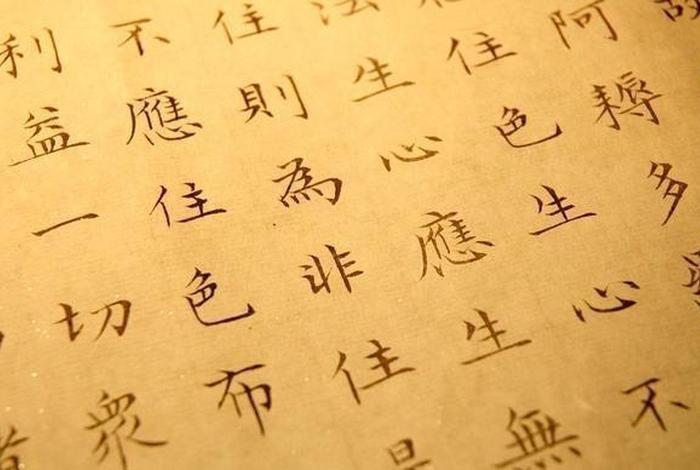 阿耨多
住色生心不
法生心應生無
住則為非住是
不應住色布
利益一切眾